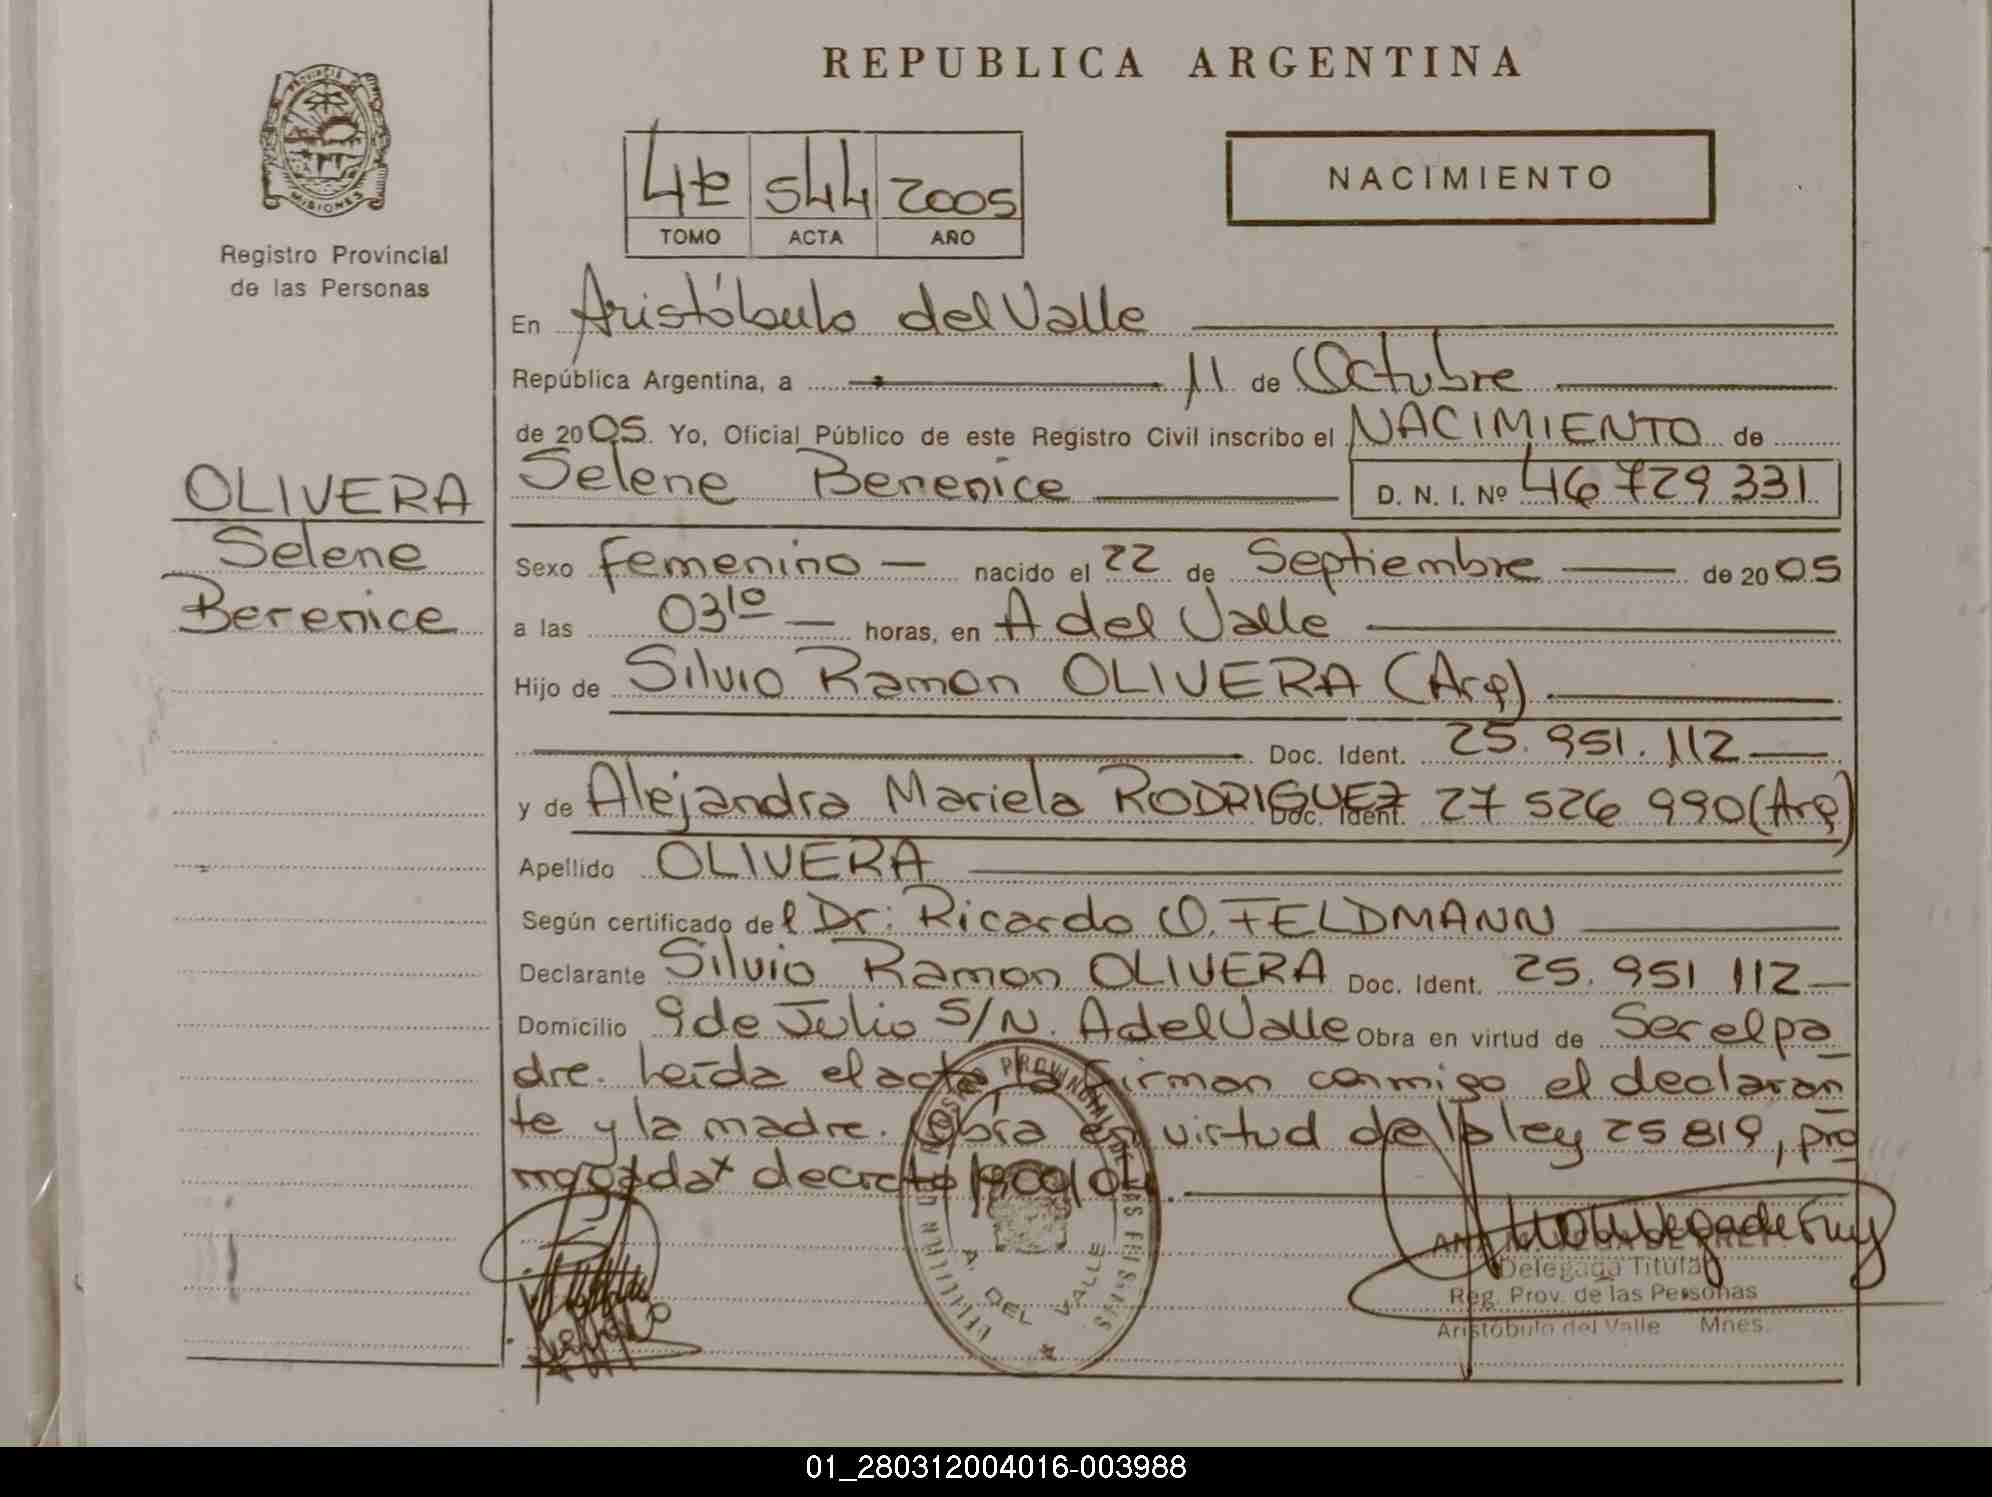 REPUBLICA ARGENTINA
PROVINCIA DE
MISIONES
Registro Provincial
de las Personas
OLIVERA
Selene
Berenice
4te 544 2005
TOMO ACTA AÑO
NACIMIENTO
En Aristóbulo del Valle
República Argentina, a 11 de Octubre
de 2005. Yo, Oficial Público de este Registro Civil inscribo el NACIMIENTO de
Selene Berenice D. N. I. Nº 46 729 331
Sexo femenino — nacido el 22 de Septiembre — de 2005
a las 03¹⁰ — horas, en A del Valle
Hijo de Silvio Ramon OLIVERA (Arg)
Doc. Ident. 25.951.112
y de Alejandra Mariela RODRIGUEZ Doc. Ident. 27 526 990 (Arg)
Apellido OLIVERA
Según certificado del Dr: Ricardo O. FELDMANN
Declarante Silvio Ramon OLIVERA Doc. Ident. 25.951 112
Domicilio 9 de Julio S/N. A del Valle Obra en virtud de Ser el pa
dre. Leída el acta la firman conmigo el declaran
te y la madre. Obra en virtud de la ley 25 819, pro
mogada x decreto 1900/04.
A. DEL VALLE
Delegada Titular
Reg. Prov. de las Personas
Aristóbulo del Valle Mnes.
01_280312004016-003988